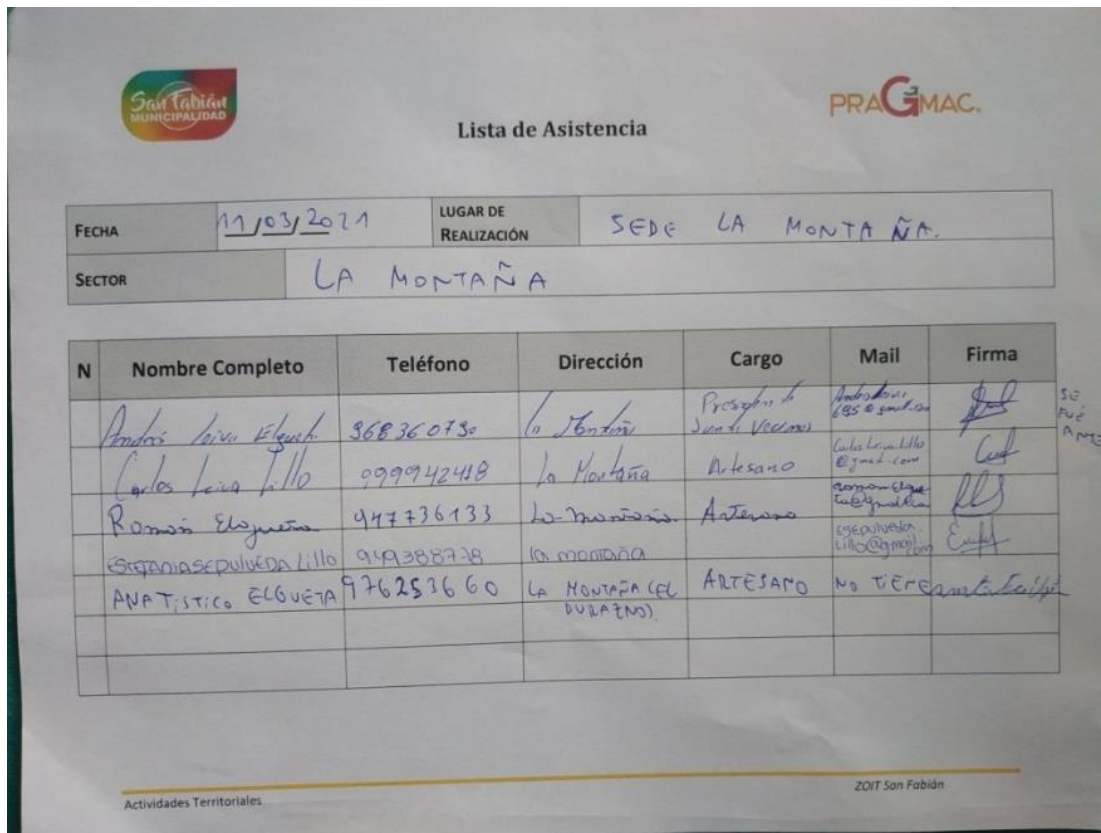 San Fabián
MUNICIPALIDAD
PRAGMAC.
Lista de Asistencia
FECHA 11/03/2021 LUGAR DE REALIZACIÓN SEDE LA MONTAÑA.
SECTOR LA MONTAÑA
N Nombre Completo Teléfono Dirección Cargo Mail Firma
Andrés Leiva 968360730 La Montaña Presidente Junta Vecinos
Carlos Leiva Lillo 999942418 La Montaña Artesano Carlos Leiva Lillo @gmail.com
Ramón Elgueta 947736133 La montaña. Artesano
ESTEFANIA SEPULVEDA Lillo 949388778 la montaña ESEPULVEDA.Lillo@gmail.com
ANATISTICO ELGUETA 976253660 LA MONTAÑA (EL DURAZNO). ARTESANO NO TIENE
SE FUÉ
Actividades Territoriales
ZOIT San Fabián